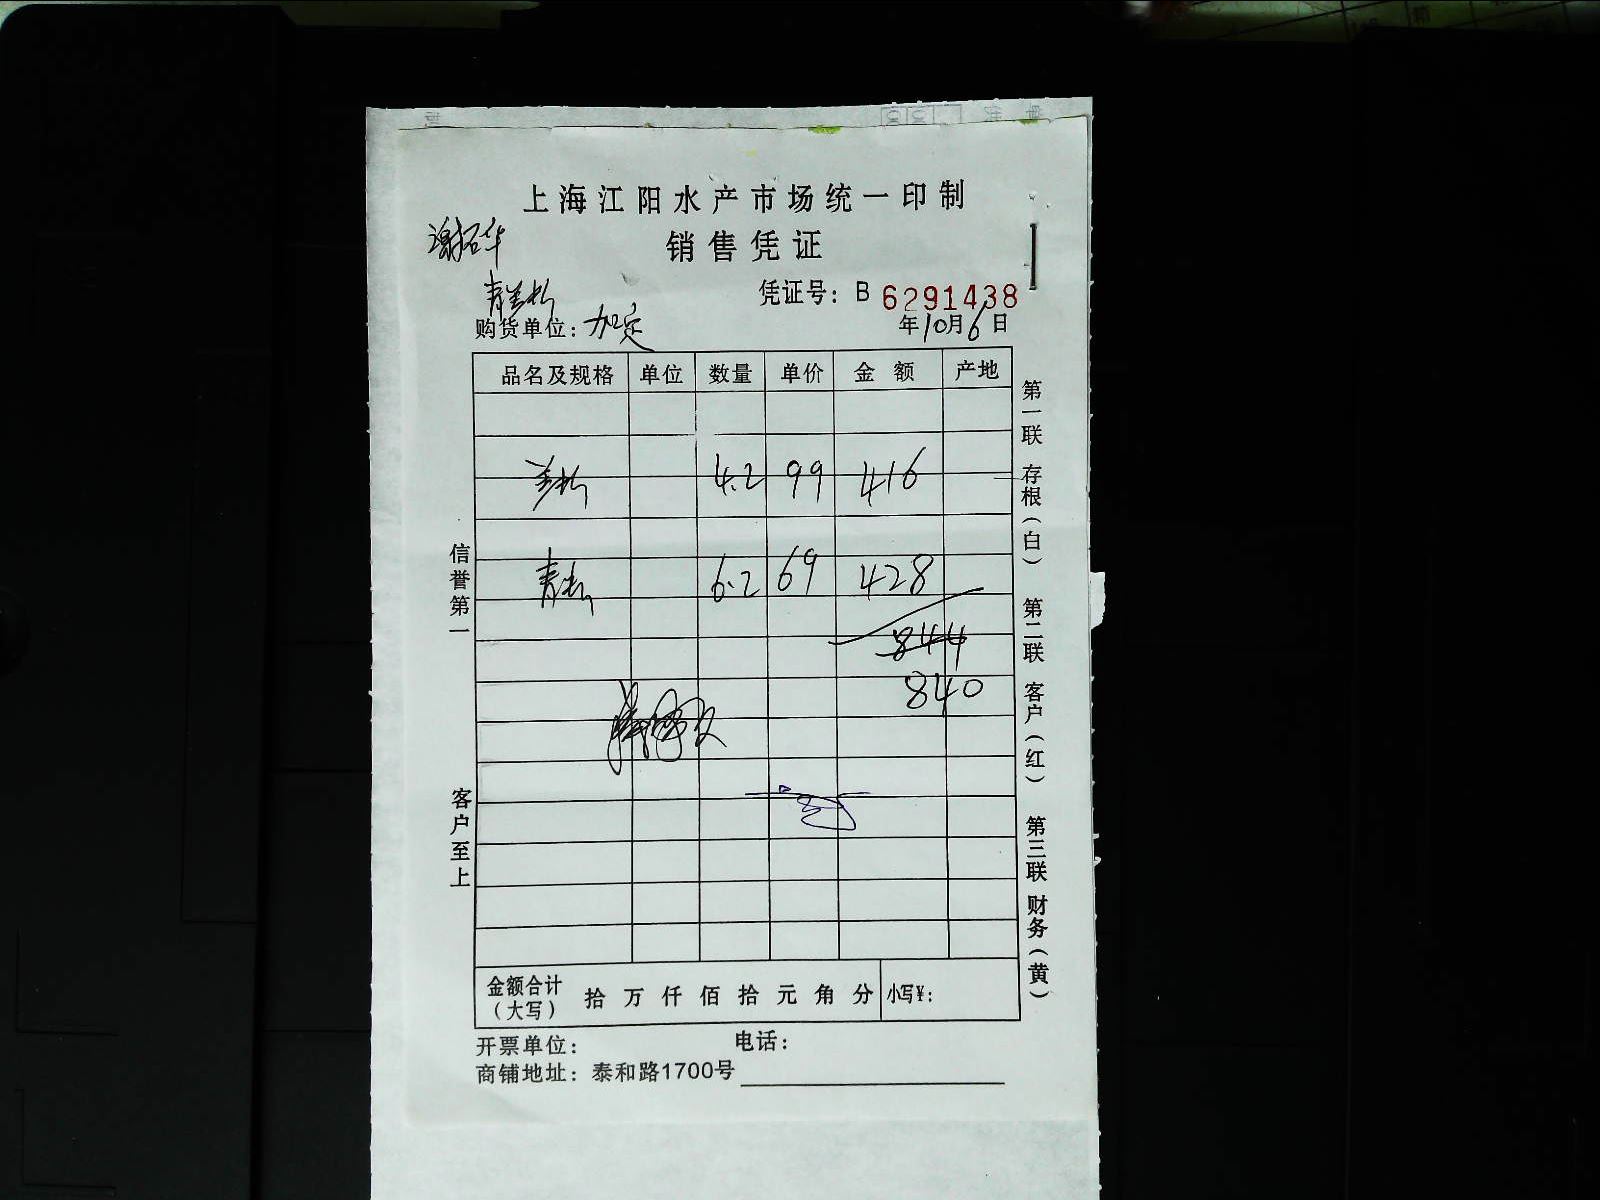 上海江阳水产市场统一印制
销售凭证
凭证号：B 6291438
购货单位：加定
年10月6日
品名及规格 单位 数量 单价 金额 产地
4.2 99 416
6.2 69 428
844
840
金额合计（大写） 拾万仟佰拾元角分 小写¥：
开票单位： 电话：
商铺地址：泰和路1700号
信誉第一
客户至上
第一联 存根（白） 第二联 客户（红） 第三联 财务（黄）